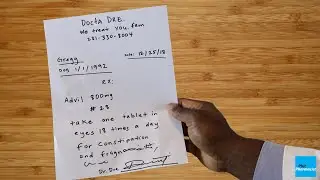 Docta DRE
We treat you, fam
221-330-8004
Gregg
Date: 12/25/18
DOB 1/1/1992
RX:
Advil 800mg
# 28
take one tablet in
eyes 18 times a day
for constipation
and
Dr. Dre